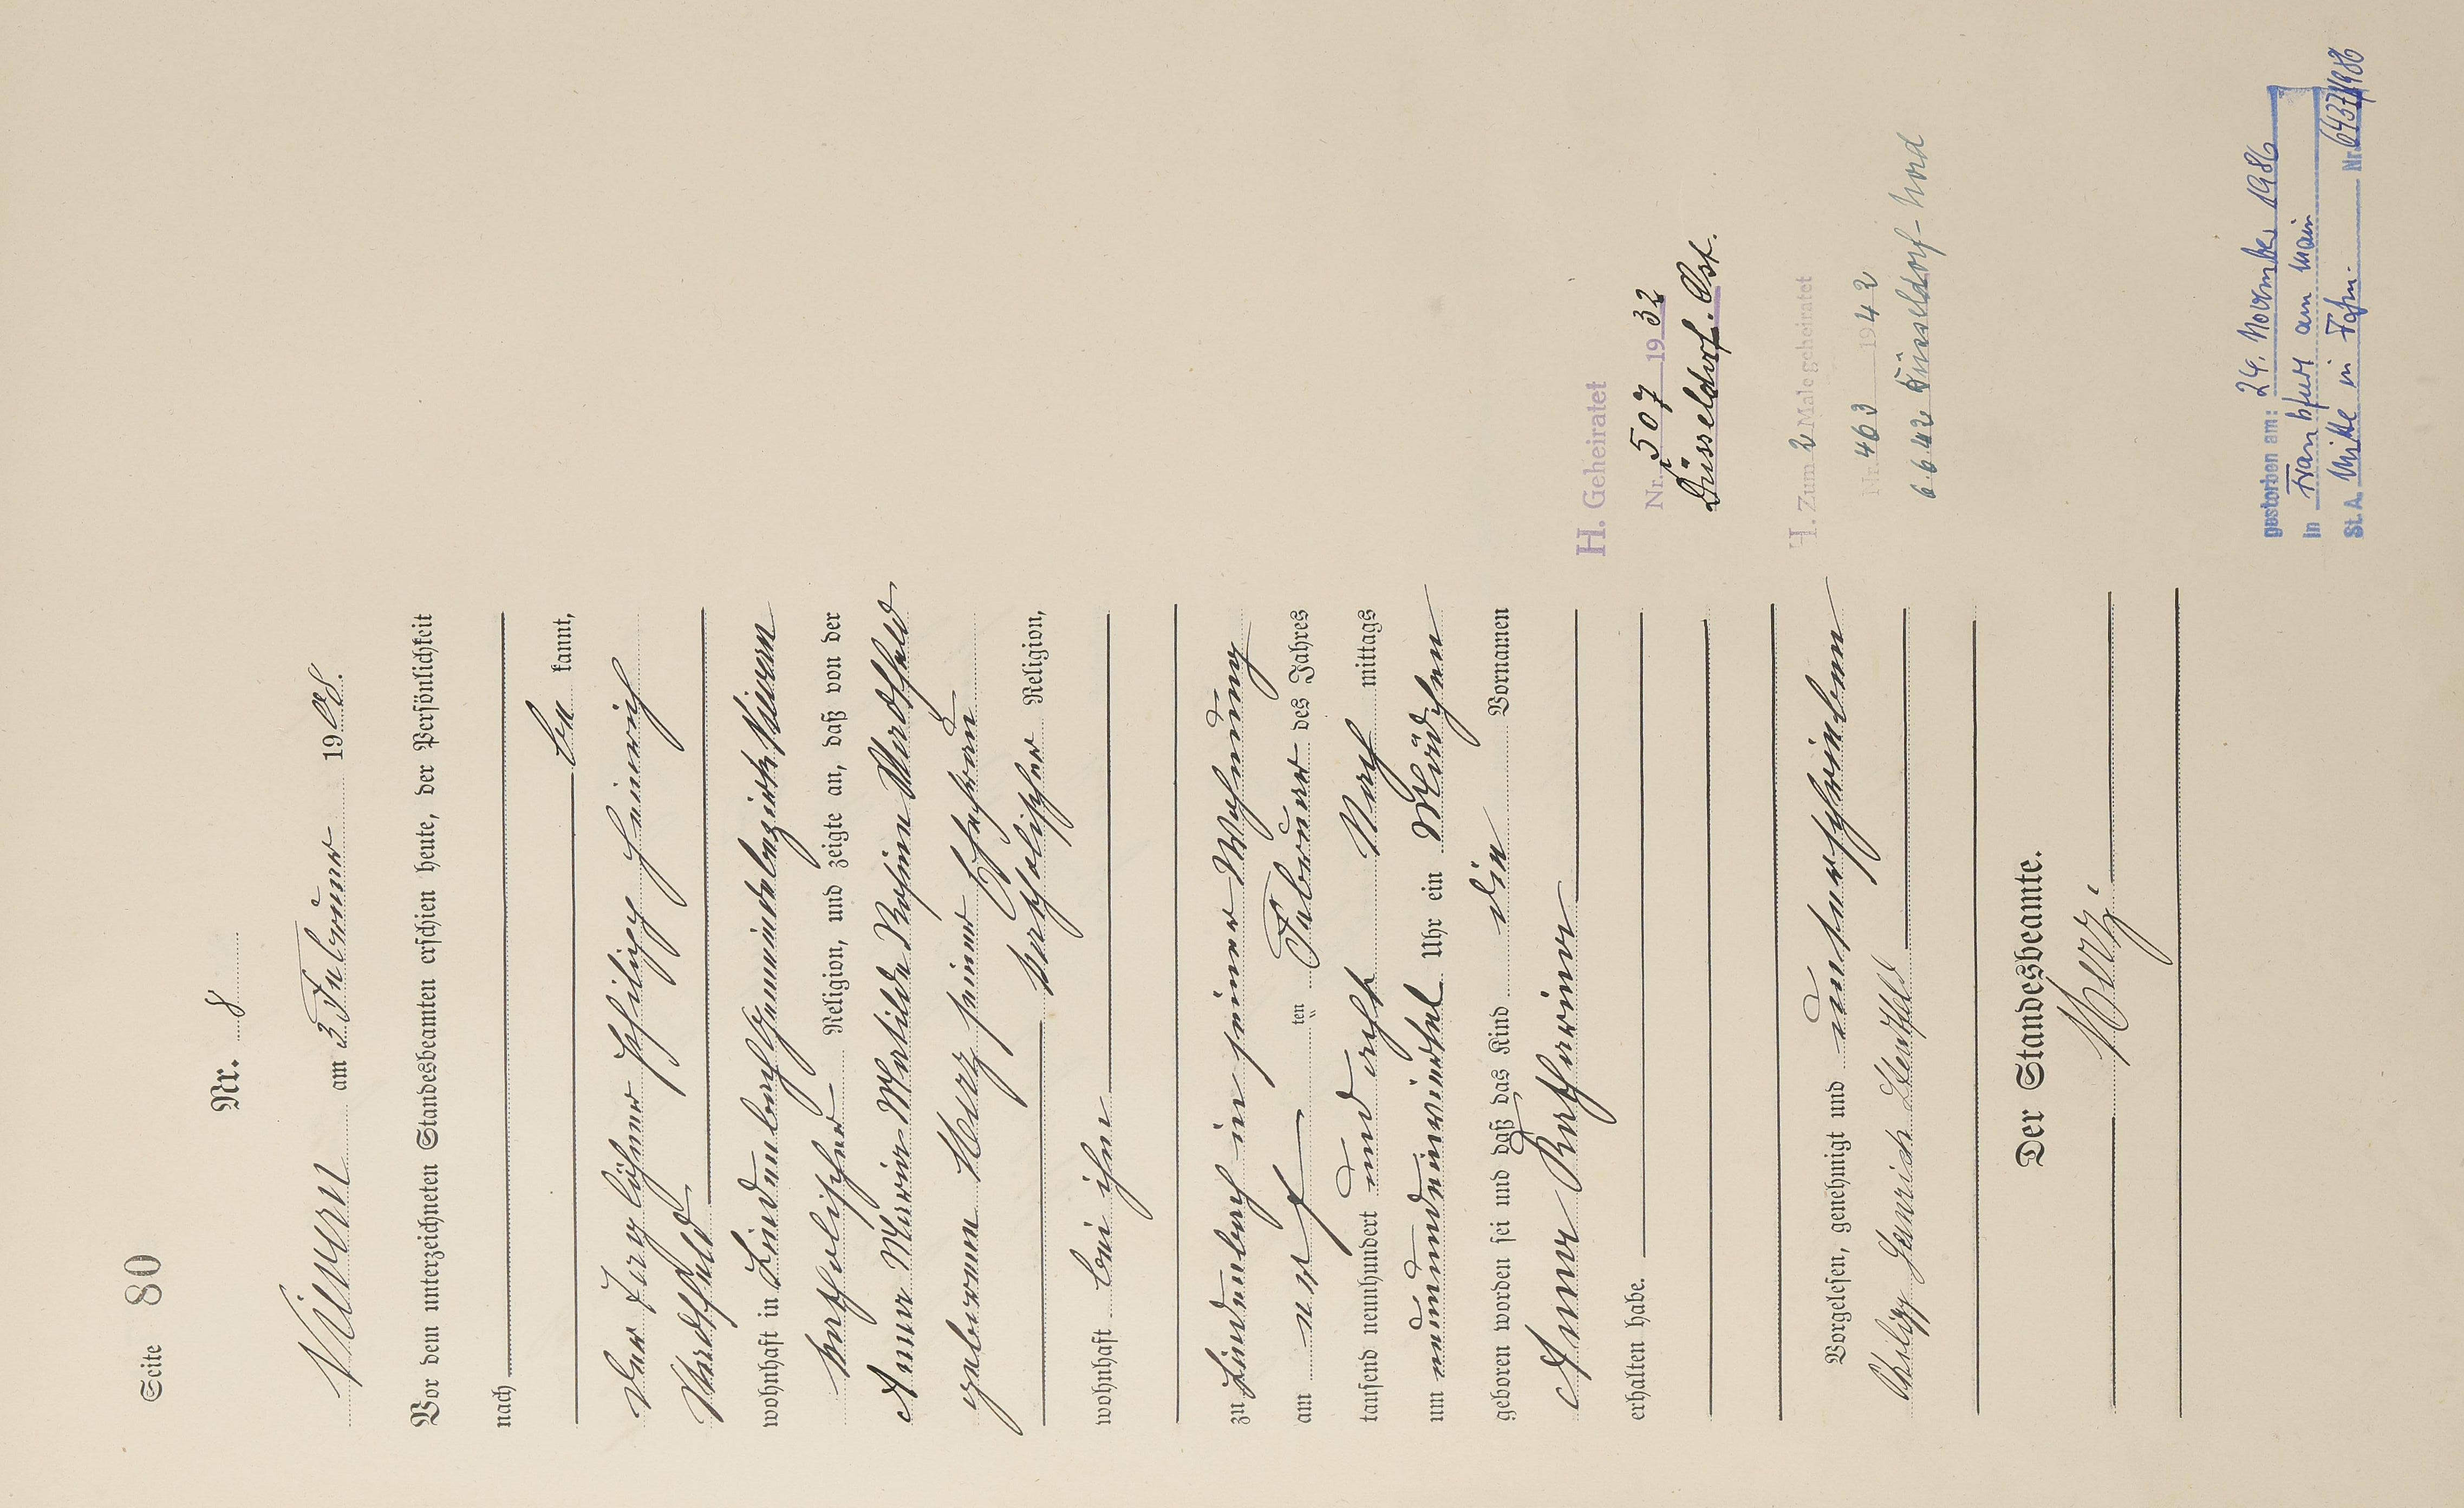 Seite 80
Nr. 8
Nievern am 3 Februar 1908.
Vor dem unterzeichneten Standesbeamten erschien heute, der Persönlichkeit
nach
be kannt,
der Taglöhner Philipp Heinrich
wohnhaft in Lindenbach Gemeindebezirk Nievern
katholischer Religion, und zeigte an, daß von der
Anna Maria Mathilde Rosina
geborenen Merz seiner Ehefrau
katholischer Religion,
wohnhaft bei ihm
zu Lindenbach in seiner Wohnung
am ersten Februar des Jahres
tausend neunhundert und acht Nach mittags
um neunundeinviertel Uhr ein Mädchen
geboren worden sei und daß das Kind die Vornamen
Anna Katharina
erhalten habe.
Vorgelesen, genehmigt und unterschrieben
Philipp Heinrich
Der Standesbeamte.
Merz.
H. Geheiratet
Nr. 507 1932
Düsseldorf. Ost.
H. Zum 2 Male geheiratet
Nr. 463 1942
6.6.42 Düsseldorf-Nord
gestorben am: 24. November 1986
in Frankfurt am Main
St. A. Mitte in Ffm. Nr. 6437/1986